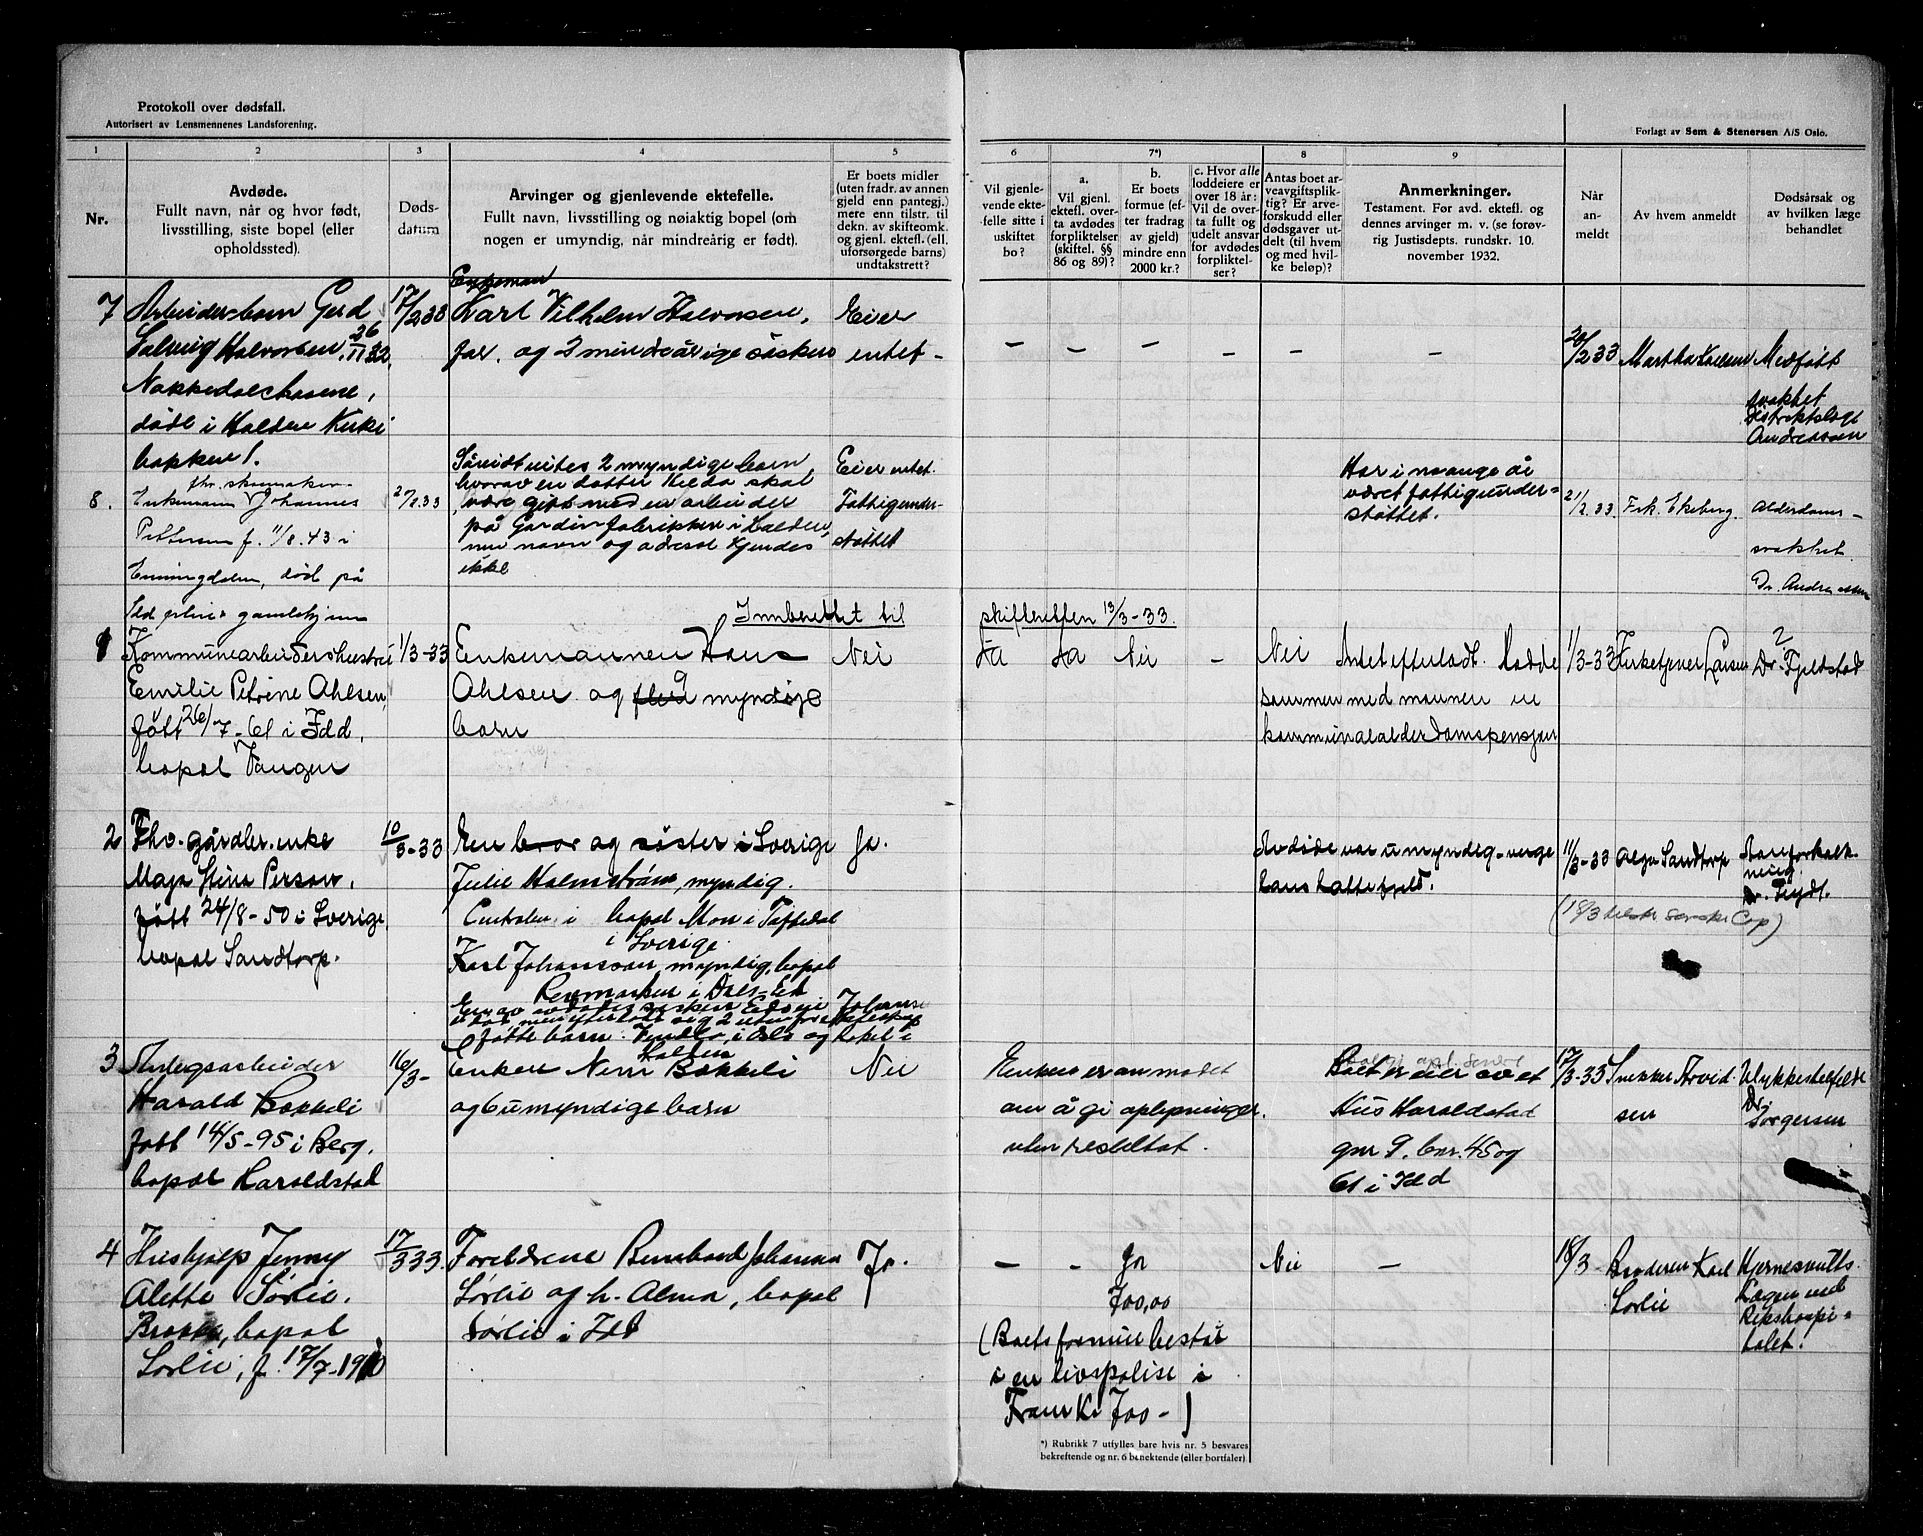 Protokoll over dødsfall.
Autorisert av Lensmennenes Landsforening.
Forlagt av Sem & Stenersen A/S Oslo.
1
2
3
4
5
6
7*)
8
9
Nr.
Avdøde.
Fullt navn, når og hvor født,
livsstilling, siste bopel (eller
opholdssted).
Døds-
datum
Arvinger og gjenlevende ektefelle.
Fullt navn, livsstilling og nøiaktig bopel (om
nogen er umyndig, når mindreårig er født).
Er boets midler
(uten fradr. av annen
gjeld enn pantegj.)
mere enn tilstr. til
dekn. av skifteomk.
og gjenl. ektef. (ell.
uforsørgede barns)
undtakstrett?
Vil gjenle-
vende ekte-
felle sitte i
uskiftet
bo?
a.
Vil gjenl.
ektef. over-
ta avdødes
forpliktelser
(skiftel. §§
86 og 89)?
b.
Er boets
formue (ef-
ter fradrag
av gjeld)
mindre enn
2000 kr.?
c. Hvor alle
loddeiere er
over 18 år:
Vil de over-
ta fullt og
udelt ansvar
for avdødes
forpliktel-
ser?
Antas boet ar-
veavgiftsplik-
tig? Er arve-
forskudd eller
dødsgaver ut-
delt (til hvem
og med hvil-
ke beløp)?
Anmerkninger.
Testament. Før avd. ektef. og
dennes arvinger m. v. (se forøv-
rig Justisdepts. rundskr. 10.
november 1932.
Når
an-
meldt
Av hvem anmeldt
Dødsårsak og
av hvilken læge
behandlet
7 Arbeiderbarn Gerd
Solveig Halvorsen, 26/11 32,
Nokkedalchasene,
død i Halden Kirke
bakken 1.
17/2 33
Enkemann
Karl Vilhelm Halvorsen,
far, og 2 mindreårige søsken
Eier
intet -
- - - - - -
20/2 33 Martha Karlsen Medfødt
svakhet
Distriktslæge
Andreassen
8. fhv. skomaker
Enkemann Johannes
Pettersen f. 11/8.43 i
Enningdalen, død på
Idd pleie- gamlehjem
27/2 33
Såvidt vites 2 myndige barn,
hvorav en datter Hilda skal
være gift med en arbeider
på Gardinfabrikken i Halden,
men navn og adresse kjendes
ikke
Eier intet.
Fattigunder-
støttet
Har i mange år
været fattigunder-
støttet.
21/2 33. Frk. Ekeberg. Alderdoms-
svakhet.
Dr. Andreassen
Innberettet til skifteretten 13/3-33.
1 Kommunearbeiderhustru
Emilie Petrine Ahlsen,
født 26/7-61 i Idd,
bopel Tangen
1/3-33
Enkemannen Hans
Ahlsen og 9 myndige
barn
Nei
Ja Ja Nei -
Nei Intet efterladt. Hadde
sammen med mannen en
kommunal alderdomspensjon
1/3-33 Kirketjener Larsen ?
Dr. Fjeldstad
2 Fhv. gårdbr. enke
Maja Stina Person,
født 24/8-50 i Sverige,
bopel Sandtorp.
10/3-33
En bror og søster i Sverige
Julie Holmstrøm, myndig.
bopel Mon i Tøftedal
i Sverige.
Karl Johansson, myndig, bopel
i Dals-Ed
Ja.
Avdøde var umyndig - verge
Hans Hattefjeld.
11/3-33 Olga Sandtorp
Dr. Tfydt.
3 Anlegsarbeider
Harald Bakkeli
født 14/5-95 i Berg,
bopel Haraldstad
16/3-
Enken Nem Bakkeli
og 6 umyndige barn
Nei
Enken er anmodet
om å gi oplysninger,
uten resultat.
Boet er eier av et
Hus Haraldstad
gnr 9. bnr. 45 og
61 i Idd
17/3-33 Snekker Arvid-
sen
Ulykkestilfelde
Dr.
Jørgensen
4 Hushjelp Jenny
Alette Sørlie.
bopel
Sørlie, f. 17/7-1910
17/3 33.
Foreldrene Bernhard Johannes
Sørlie og h. Alma, bopel
Sørlie i Idd
Ja.
- - Ja
700,00
(Boets formue består
i en livspolise i
Fram Kr 700-)
Nei -
18/3 Broderen Karl
Sørlie
Hjernesvulst.
Lægen ved
Rikshospi-
talet.
*) Rubrikk 7 utfylles bare hvis nr. 5 besvares
bekreftende og nr. 6 benektende (eller bortfaler)